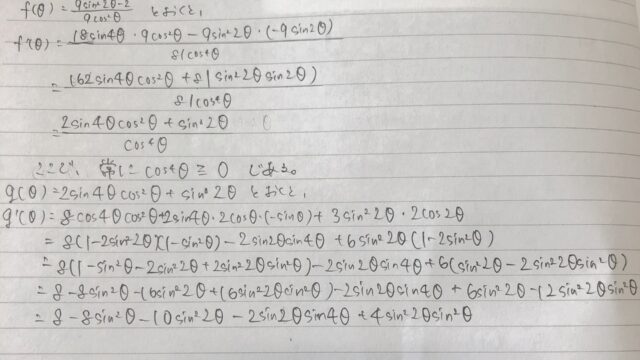 f(θ) = 9sin²2θ-2 / 9cos²θ とおくと、
f'(θ) = 18sin4θ・9cos²θ - 9sin²2θ・(-9sin2θ) / 81cos⁴θ
= 162sin4θcos²θ + 81sin²2θsin2θ) / 81cos⁴θ
= 2sin4θcos²θ + sin³2θ / cos⁴θ
ここで、常に cos⁴θ ≧ 0 である。
g(θ) = 2sin4θcos²θ + sin³2θ とおくと、
g'(θ) = 8cos4θcos²θ+2sin4θ・2cosθ・(-sinθ) + 3sin²2θ・2cos2θ
= 8(1-2sin²2θ)(1-sin²θ) - 2sin2θsin4θ + 6sin²2θ(1-2sin²θ)
= 8(1-sin²θ-2sin²2θ+2sin²2θsin²θ) - 2sin2θsin4θ + 6(sin²2θ-2sin²2θsin²θ)
= 8-8sin²θ-16sin²2θ+16sin²2θsin²θ)-2sin2θsin4θ + 6sin²2θ-12sin²2θsin²θ
= 8-8sin²θ-10sin²2θ-2sin2θsin4θ+4sin²2θsin²θ